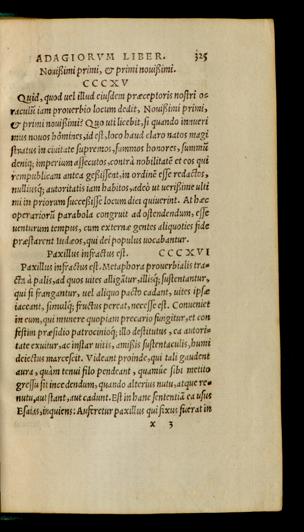 ADAGIORVM LIBER. 325
Nouißimi primi, & primi nouißimi.
CCCXV
Quid, quod uel illud eiusdem præceptoris nostri o-
raculũ iam prouerbio locum dedit, Nouißimi primi,
& primi nouißimi? Quo uti licebit, si quando inuueri
mus nouos homines, id est, loco haud claro natos magi
stratus in ciuitate supremos, summos honores, summũ
deniq; imperium assecutos, contrà nobilitatẽ et eos qui
rempublicam antea geßissent, in ordinẽ esse redactos,
nulliusq; autoritatis iam habitos, adeò ut uerißime ulti
mi in priorum succeßisse locum dici quiuerint. At hæc
operariorũ parabola congruit ad ostendendum, esse
uenturum tempus, cum externæ gentes aliquoties fide
præstarent Iudæos, qui dei populus uocabantur.
Paxillus infractus est. CCCXVI
Paxillus infractus est. Metaphora prouerbialis tra-
cta à palis, ad quos uites alligãtur, illisq; sustentantur,
qui si frangantur, uel aliquo pacto cadant, uites ipsæ
iaceant, simulq; fructus pereat, necesse est. Conueniet
in eum, qui munere quopiam precario fungitur, et con
festim præsidio patrocinioq; illo destitutus, ea autori-
tate exuitur, ac instar uitis, amißis sustentaculis, humi
deiectus marcescit. Videant proinde, qui tali gaudent
aura, quàm tenui filo pendeant, quamúe sibi metito
gressu sit incedendum, quando alterius nutu, atque re-
nutu, aut stant, aut cadunt. Est in hanc sententiã ea usus
Esaias, inquiens: Auferetur paxillus qui fixus fuerat in
x 3